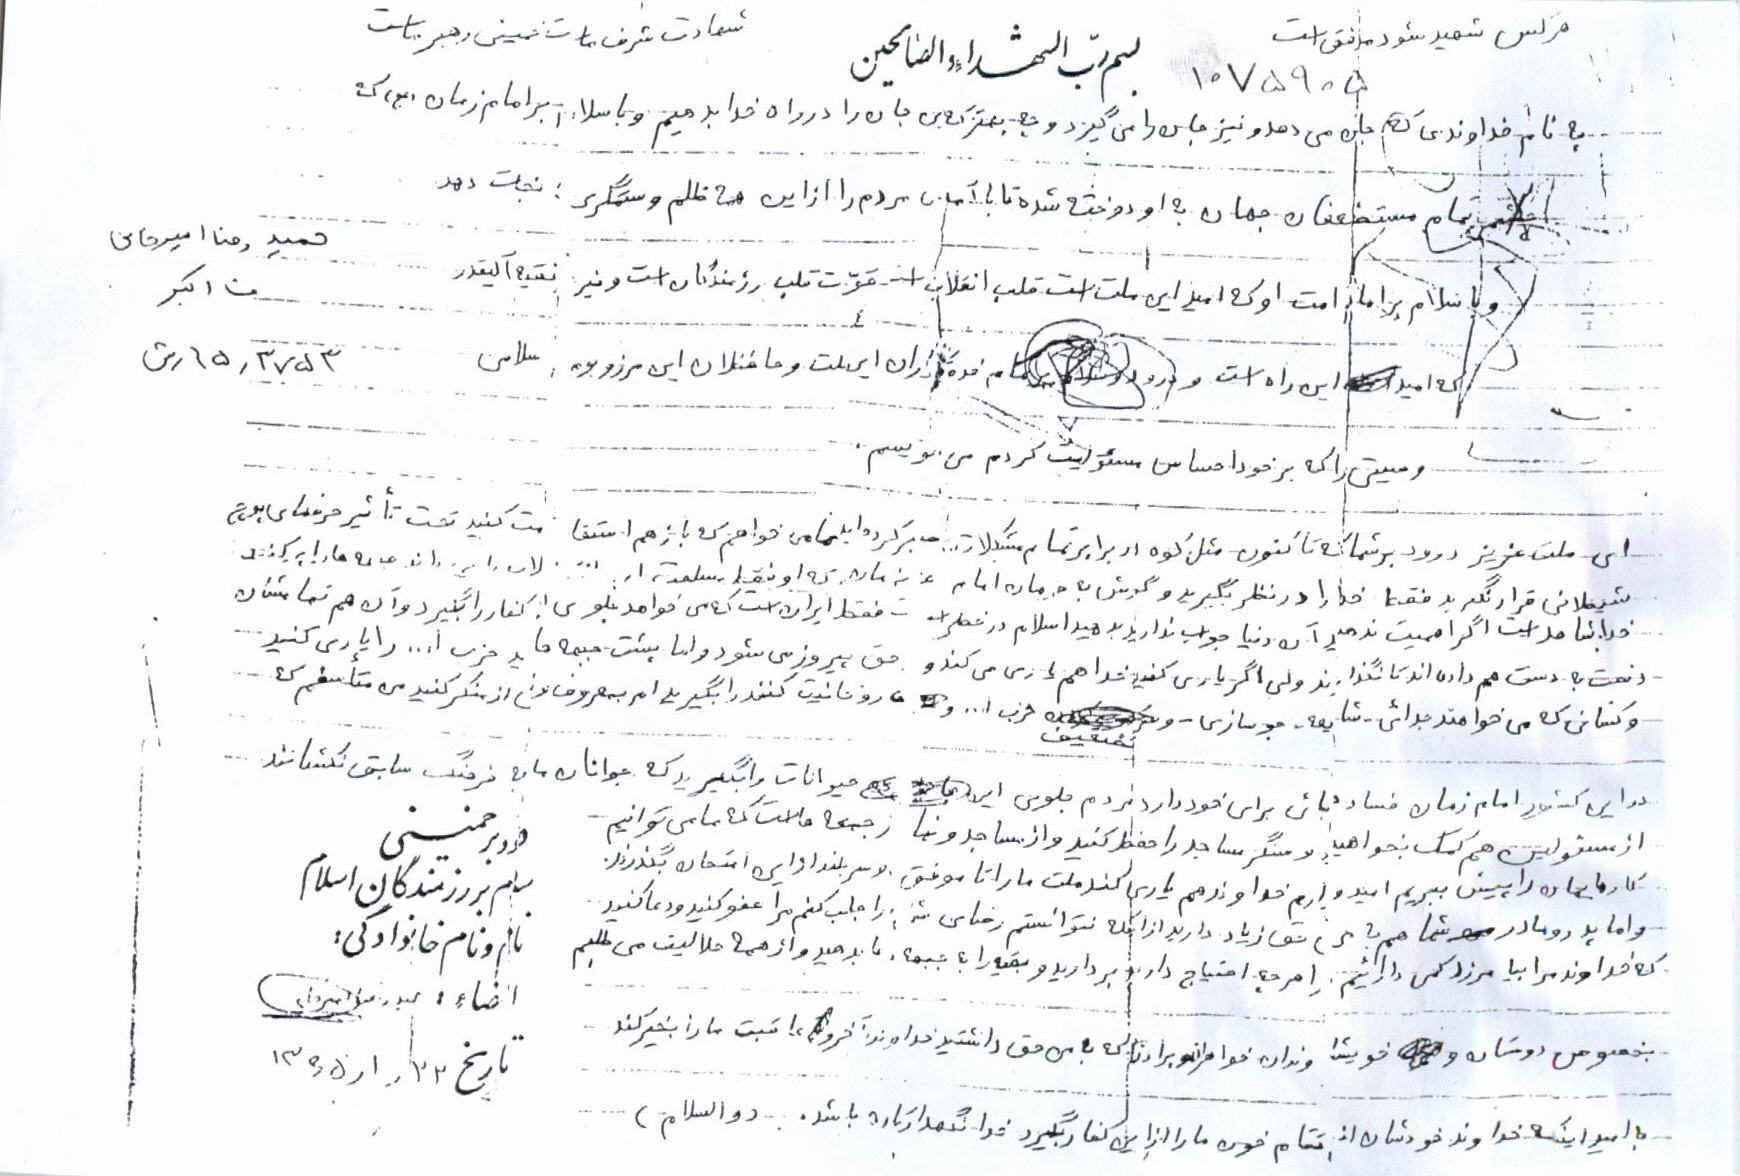 هرکس شهید شود موفق است
شهادت شرف ماست خمینی رهبر ماست
بسم رب الشهداء والصالحین
۱۰۷۵۹۰۵
به نام خداوندی که جان می دهد و نیز جان را می گیرد و چه بهتر که این جان را در راه خدا بدهیم و با سلام بر امام زمان (عج) که
چشم تمام مستضعفان جهان به او دوخته شده تا با آمدن مردم را از این همه ظلم و ستمگری نجات دهد
حمید رضا امیرخانی
و با سلام بر امام امت او که امید این ملت است قلب انقلاب است قوت قلب رزمندگان است و نیز فقیه آلیقدر
ف اکبر
که امید این راه است و درود و سلام بر تمام خدمتگذاران این ملت و حافظان این مرز و بوم سلامی
۶۵٫۳۷۵۳ رش
وصیتی را که بر خود احساس مسئولیت کردم می نویسم.
ای ملت عزیز درود بر شما که تا کنون مثل کوه در برابر تمام مشکلات صبر کرده اید می خواهم که باز هم استقامت کنید تحت تأثیر حرفهای پوچ
شیطانی قرار نگیرید فقط خدا را در نظر بگیرید و گوش به فرمان امام عزیزمان که او فقط مصلحت را می داند جبهه ها را پر کنید
خدا شاهد است اگر اهمیت ندهید آن دنیا جواب ندارید بدهید اسلام در خطر است فقط ایران است که می خواهد جلوی کفار را بگیرد و آن هم تمامشان
دست به دست هم داده اند تا نگذارند ولی اگر یاری کنید خدا هم یاری می کند و حق پیروز می شود و اما پشت جبهه ها ید حزب ا... را یاری کنید
و کسانی که می خواهند جدائی - شایعه - جوسازی - و تضعیف حزب ا... و روحانیت کنند را بگیرید امر به معروف و نهی از منکر کنید من متأسفم که
در این کشور امام زمان فساد جائی برای خود دارد مردم جلوی این حیوانات را بگیرید که جوانان ما به فرهنگ سابق نکشانند
از مسئولین هم کمک بخواهید و سنگر مساجد را حفظ کنید و از مساجد و نماز جمعه هاست که ما می توانیم
کارهایمان را پیش ببریم امیدوارم خداوند هم یاری کند ملت ما را تا موفق و سربلند از این امتحان بگذرند.
و اما پدر و مادر شما هم به من حق زیاد دارید از اینکه نتوانستم رضای شما را جلب کنم مرا عفو کنید و دعا کنید
که خداوند مرا بیامرزد کمی دارائیم را هر چه احتیاج دارید بردارید و بقیه را به جبهه ها بدهید و از همه حلالیت می طلبم
بخصوص دوستان و خویشاوندان خواهران و برادران که به من حق داشتید خداوند آخر و عاقبت ما را بخیر کند
به امید اینکه خداوند خودشان انتقام خون ما را از این کفار بگیرد خدا نگهدارتان باشد. (والسلام)
درود بر خمینی
سلام بر رزمندگان اسلام
نام و نام خانوادگی:
امضاء: حمید رضا امیرخانی
تاریخ ۱۳۶۵٫۱۰٫۲۲